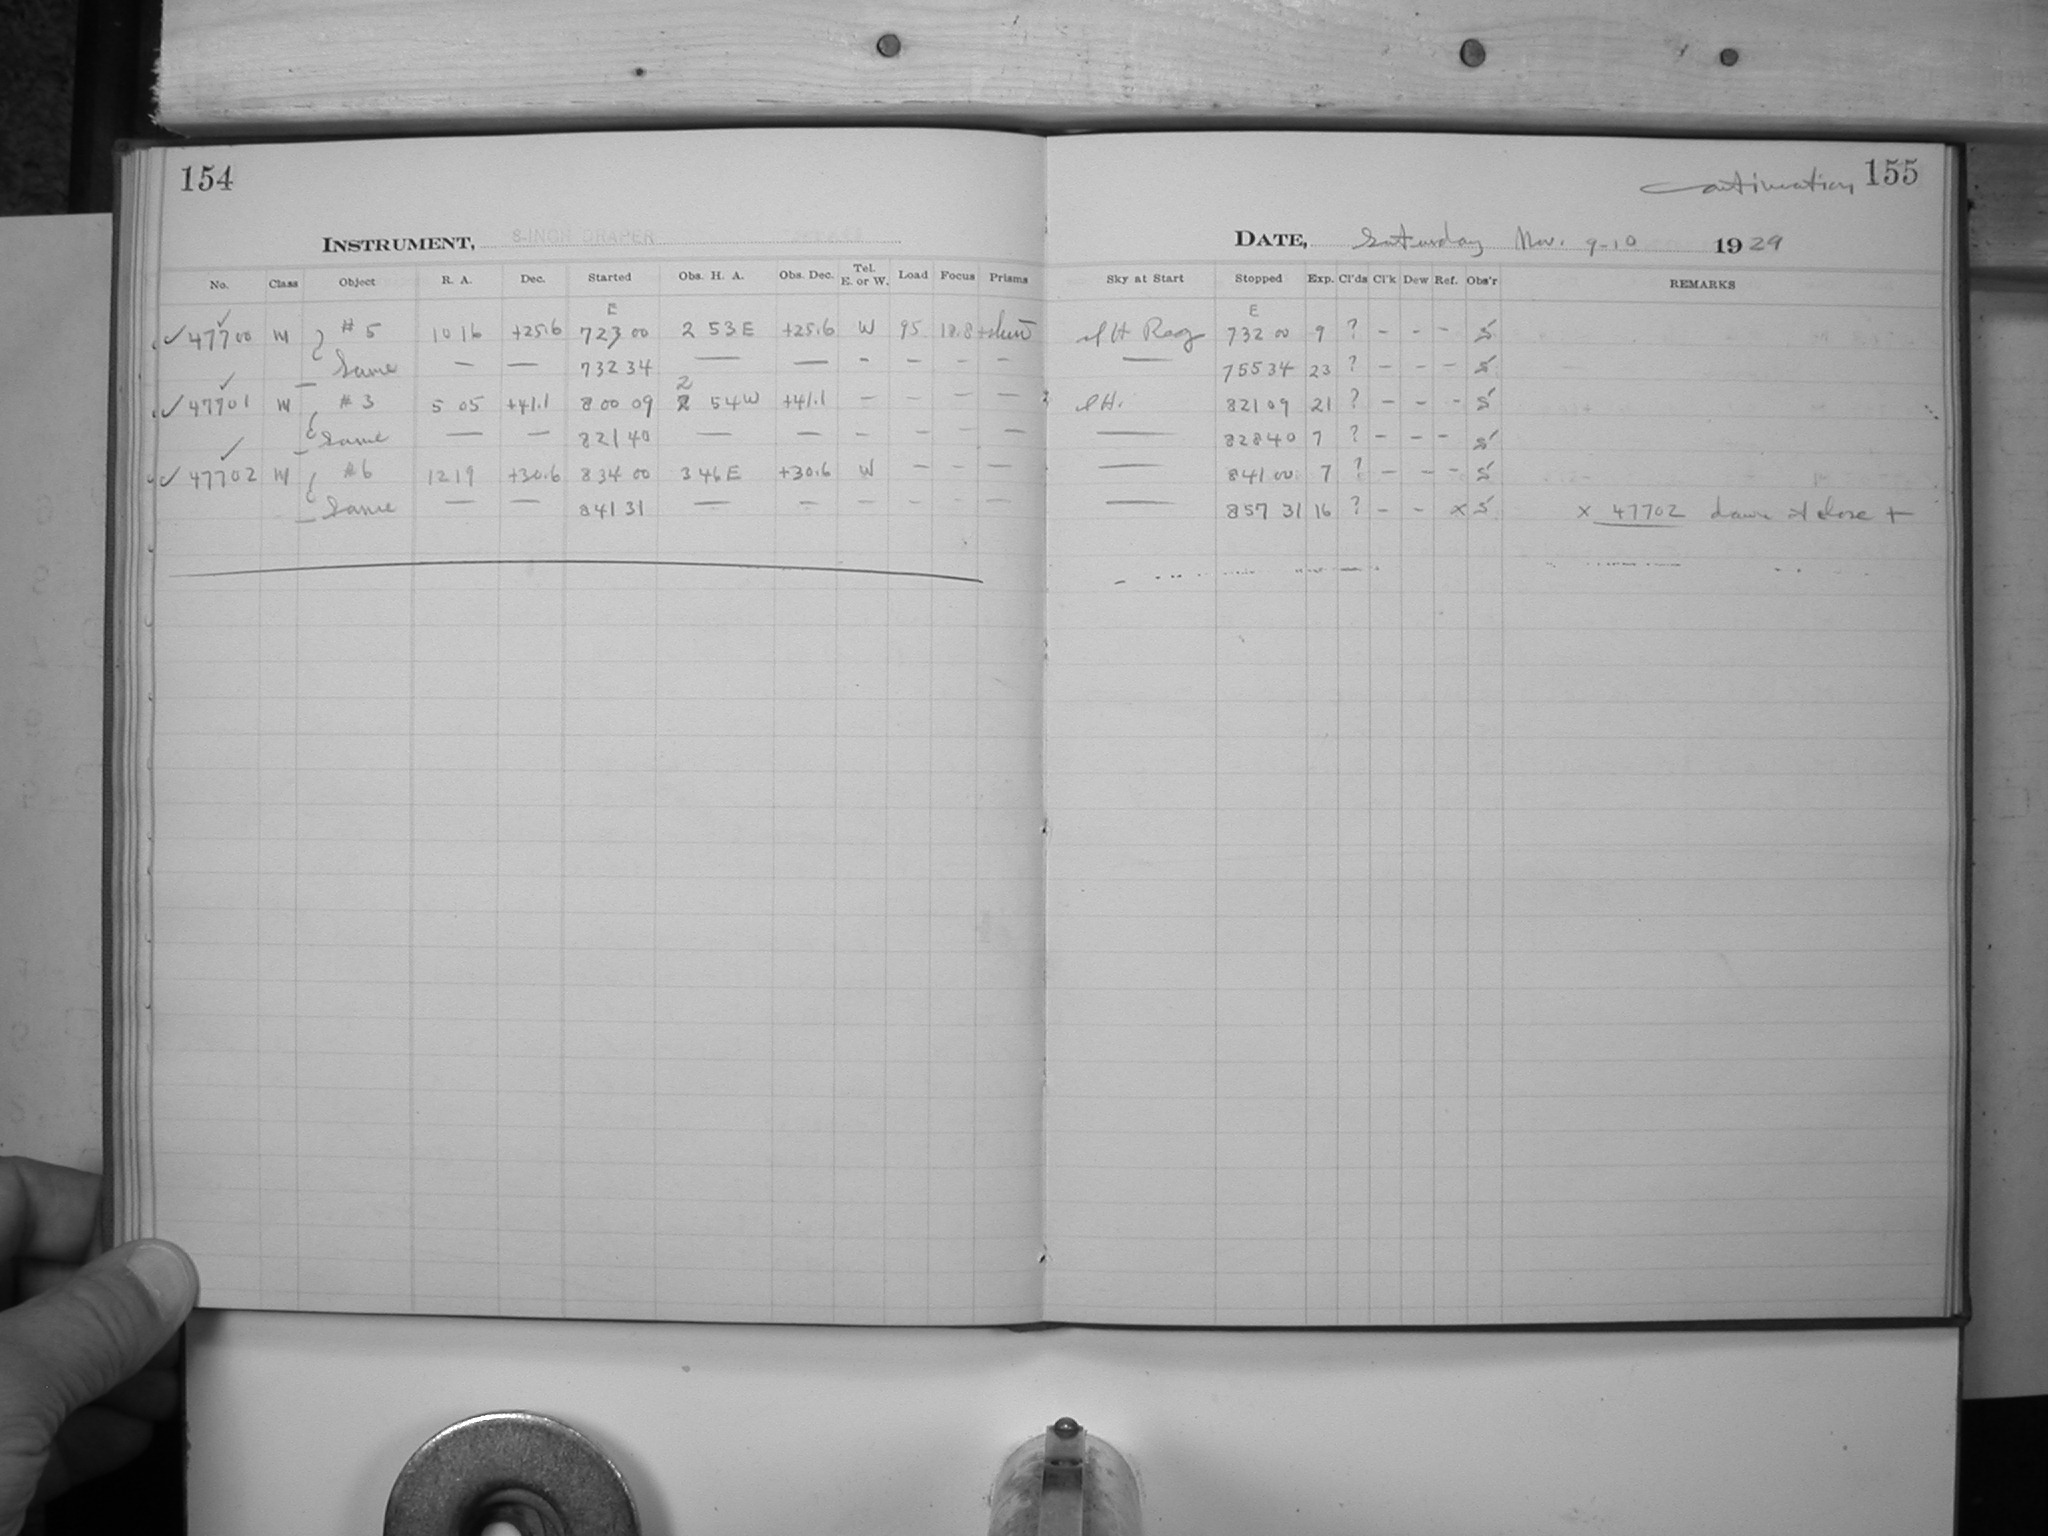 154
INSTRUMENT, 8-INCH DRAPER
No. Class Object R. A. Dec. Started Obs. H. A. Obs. Dec. Tel. E. or W. Load Focus Prisms
E
✓ 47700 M # 5 10 16 +25.6 723 00 2 53 E +25.6 W 95 18.8
Same — — 732 34 — — - - - -
2
✓ 47701 M # 3 5 05 +41.1 800 09 2 54 W +41.1 — - - —
Same — — 821 40 — — - - - —
✓ 47702 M # 6 12 19 +30.6 834 00 3 46 E +30.6 W - - —
Same — — 841 31 — — - - - —
Continuation 155
DATE, Saturday Nov. 9-10 1929
Sky at Start Stopped Exp. Cl'ds Cl'k Dew Ref. Obs'r REMARKS
E
732 00 9 ? - - - S
— 755 34 23 ? - - - S
821 09 21 ? - - - S
— 828 40 7 ? - - - S
— 841 00 7 ? - - - S
— 857 31 16 ? - - x S x 47702 dawn at close +